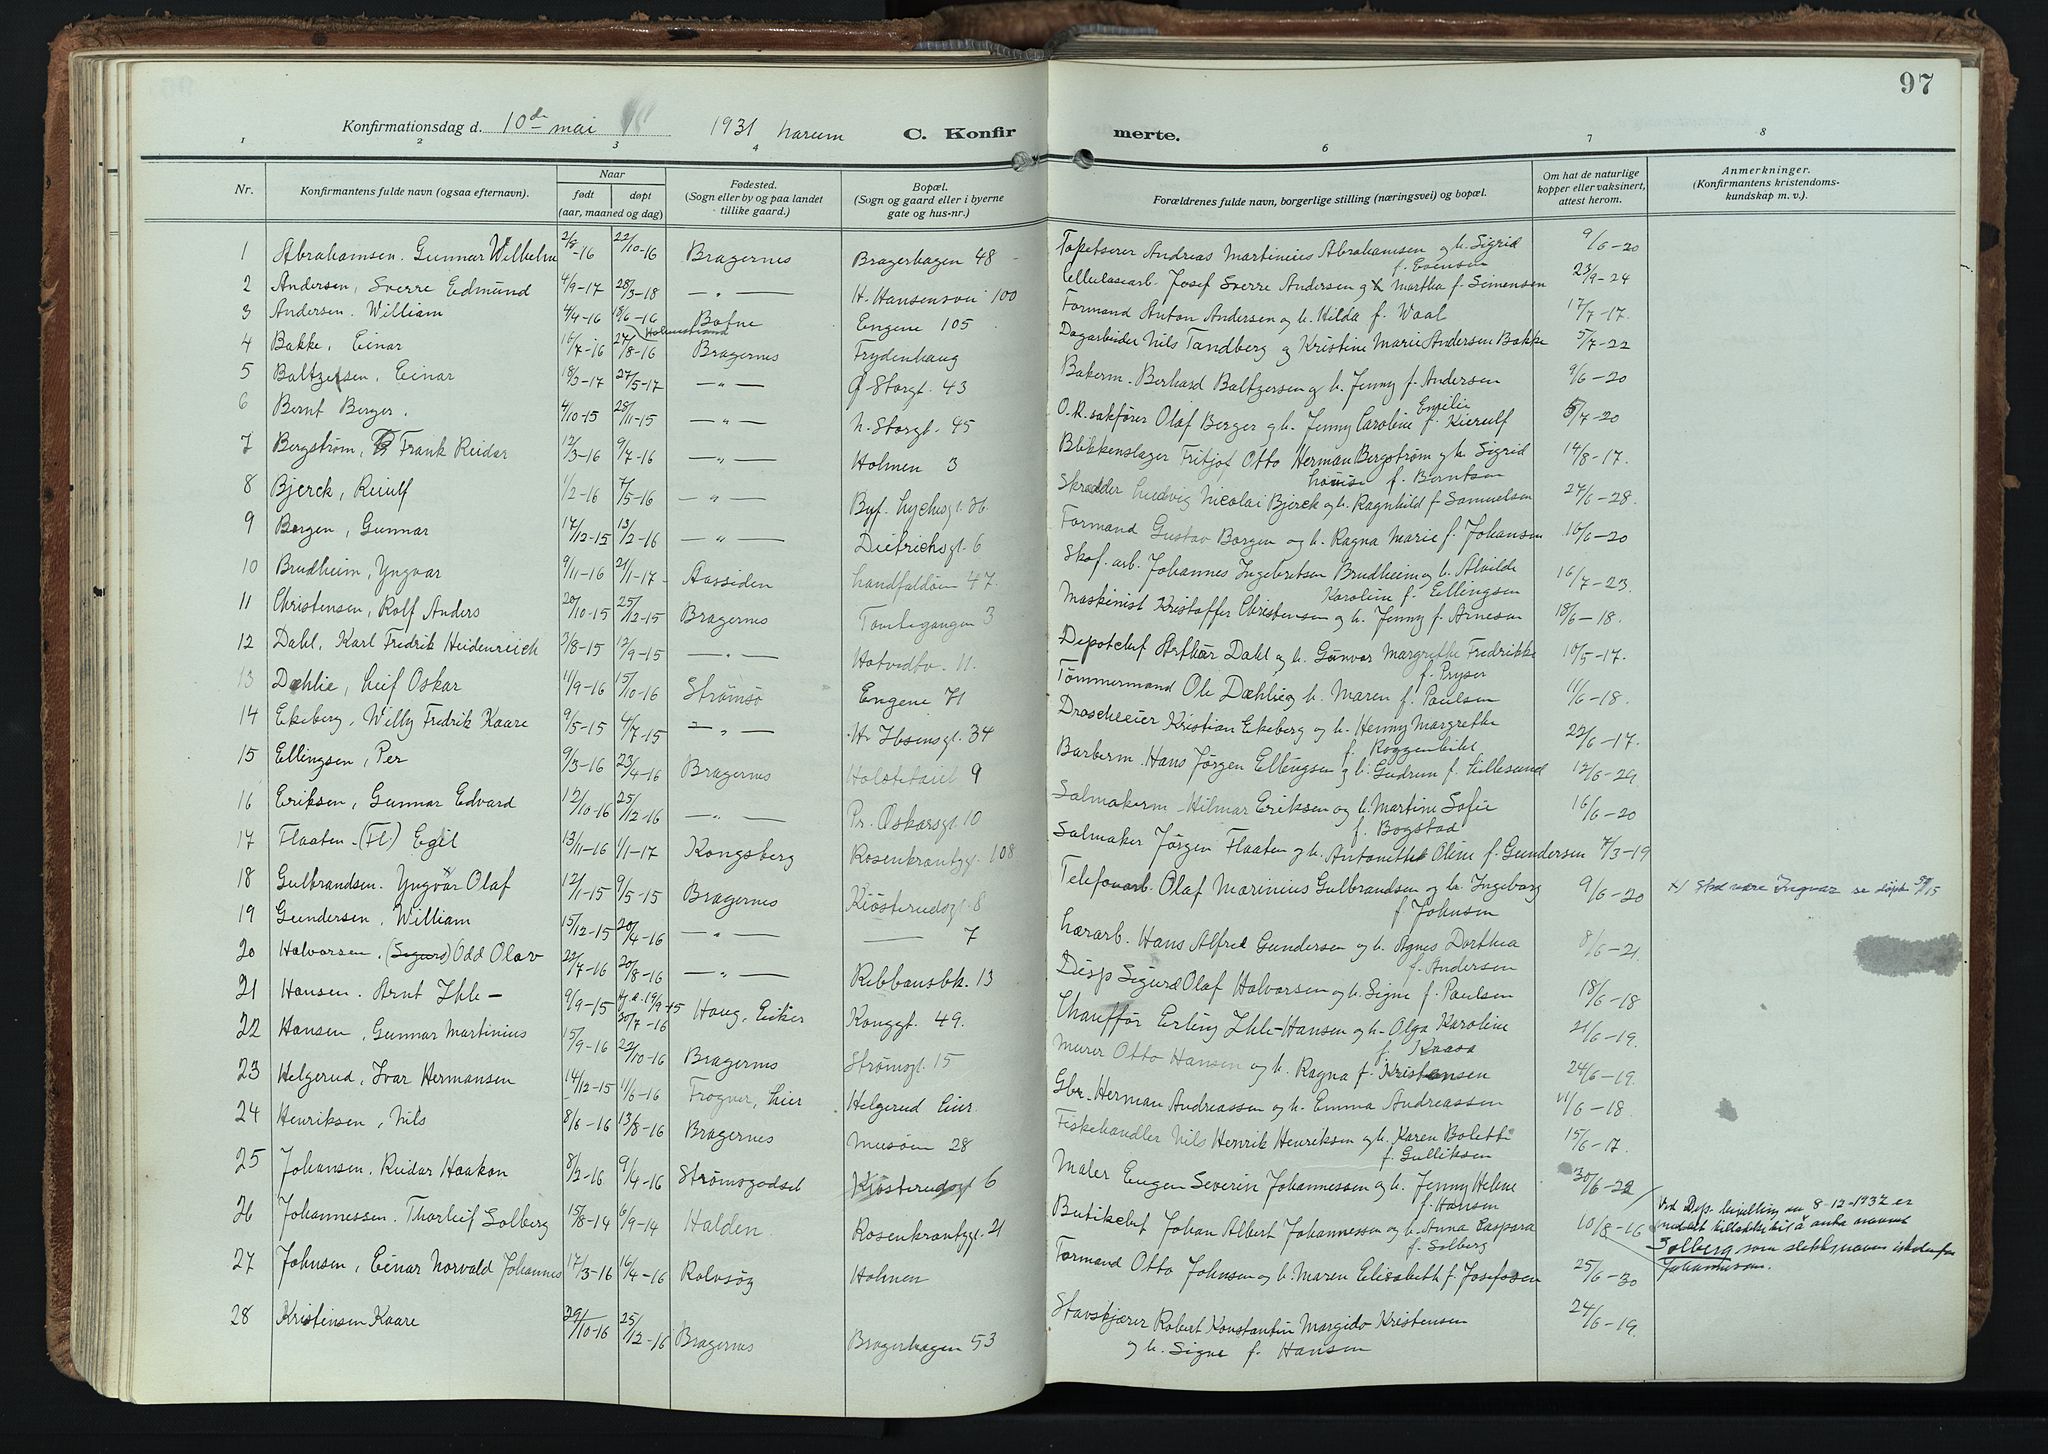 97
Konfirmationsdag d. 10de mai 1931
C. Konfirmerte.
1 2 3 4 6 7 8
Nr. Konfirmantens fulde navn (ogsaa efternavn). Naar født døpt (aar, maaned og dag) Fødested. (Sogn eller by og paa landet tillike gaard.) Bopæl. (Sogn og gaard eller i byerne gate og hus-nr.) Forældrenes fulde navn, borgerlige stilling (næringsvei) og bopæl. Om hat de naturlige kopper eller vaksinert, attest herom. Anmerkninger. (Konfirmantens kristendoms-kundskap m. v.).
1 Abrahamsen. Gunnar Wilhelm 2/8-16 22/10-16 Bragernes Bragerhagen 48 Tapetserer Andreas Martinius Abrahamsen og h. Sigrid f. Evensen 9/6-20
2 Andersen, Sverre Edmund 4/9-17 28/3-18 — " — H. Hansensvei 100 Cellulosearb. Josef Sverre Andersen og h. Martha f. Simensen 23/9-24
3 Andersen. William 4/4-16 18/6-16 Botne Holmestrand Engene 105 Formand Anton Andersen og h. Hilda f. Waal 17/7-17.
4 Bakke, Einar 16/7-16 27/8-16 Bragernes Frydenhaug Dagarbeider Nils Tandberg og Kristine Marie Andersen Bakke 5/7-22
5 Baltzersen, Einar 18/3-17 27/5-17 — " — Ø Storgt. 43 Bakerm. Berhard Baltzersen og h. Jenny f. Andersen 9/6-20
6 Bernt Berger. 4/10-15 28/11-15 — " — N. Storgt. 45 O.R.sakfører Olaf Berger og h. Jenny Caroline Emilie f. Kierulf 5/7-20
7 Bergstrøm, Frank Reidar 12/3-16 9/7-16 — " — Holmen 3 Blikkenslager Fritjof Otto Herman Bergstrøm og h. Sigrid Louise f. Berntsen 14/8-17.
8 Bjerck, Reiulf 1/2-16 7/5-16 — " — Byf. Lychesgt. 36. Skredder Ludvig Nicolai Bjerck og h. Ragnhild f. Samuelsen 27/6-28.
9 Borgen, Gunnar 17/12-15 13/2-16 — " — Dietrichsgt. 6 Formand Gustav Borgen og h. Ragna Marie f. Johansen 10/6-20
10 Brudheim, Yngvar 9/11-16 21/1-17- Aassiden Landfaldøen 47. Skof. arb. Johannes Ingebretsen Brudheim og h. Alvilde Karoline f. Ellingsen 16/7-23.
11 Christensen, Rolf Anders 20/10-15 25/12-15 Bragernes Tomtegangen 3 Maskinist Kristoffer Christensen og h. Jenny f. Arnesen 18/6-18.
12 Dahl, Karl Fredrik Heidenreich 3/8-15 12/9-15 — " — Hotvedtv. 11. Depotchef Arthur Dahl og h. Gunvor Margrethe Fredrikke f. Pryser 10/5-17.
13 Dæhlie, Leif Oskar 11/9-16 15/10-16 Strømsø Engene 71 Tømmermand Ole Dæhlie og h. Maren f. Paulsen 11/6-18.
14 Ekeberg, Willy Fredrik Kaare 9/5-15 4/7-15 — " — Hr Ibsensgt. 34 Droscheeier Kristian Ekeberg og h. Henny Margrethe f. Roggenbihl 22/6-17.
15 Ellingsen, Per 9/3-16 23/4-16 Bragernes 9 Barberm. Hans Jørgen Ellingsen og h. Gudrun f. Lillesund 12/6-29
16 Eriksen, Gunnar Edvard 12/10-16 25/12-16 — " — Pr. Oskarsgt. 10 Salmakerm. Hilmar Eriksen og h. Martine Sofie f. Bogstad 16/6-20
17 Flaaten-(Fl.) Egil 13/11-16 1/1-17 Kongsberg Rosenkrantzgt. 108 Salmaker Jørgen Flaaten og h. Antonette Oline f. Gundersen 7/3-19
18 Gulbrandsen. Yngvar Olaf 12/1-15 9/5-15 Bragernes Kiøsterudsgt. 8 Telefonarb. Olaf Marinius Gulbrandsen og h. Ingeborg f. Johnsen 9/6-20 x) Skal være Ingvar se døpte
19 Gundersen, William 15/12-15 20/4-16 — " — — 7 Lærarb. Hans Alfred Gundersen og h. Agnes Dorthea f. Andersen 8/6-21.
20 Halvorsen. (Sigurd) Odd Olav 22/7-16 20/8-16 — " — Ribbansbk. 13 Disp Sigurd Olaf Halvorsen og h. Signe f. Paulsen 18/6-18
21 Hansen. Arnt Ihle- 9/9-15 Hj.d. 19/9-15 30/7-16 Haug, Eiker Konggt. 49. Chauffør Erling Ihle-Hansen og h- Olga Karoline f. Kaasa 21/6-19.
22 Hansen, Gunnar Martinius 15/9-16 22/10-16 Bragernes Strømsgt. 15 Murer Otto Hansen og h. Ragna f. Kristensen 24/6-19.
23 Helgerud, Ivar Hermansen 14/12-15 11/6-16 Frogner, Lier Helgerud Lier. Gbr. Herman Andreassen og h. Emma Andreassen 11/6-18.
24 Henriksen, Nils 8/6-16 13/8-16 Bragernes Museen 28 Fiskehandler Nils Henrik Henriksen og h. Karen Bolette f. Gulliksen 15/6-17.
25 Johansen. Reidar Haakon 8/2-16 9/4-16 Strømsgodset Kiøsterudsgt 6 Maler Eugen Severin Johannessen og h. Jenny Helene f. Hansen 30/6-22
26 Johannessen. Thorleif Solberg 15/8-14 6/9-14 Halden. Rosenkrantzgt. 21 Butikchef Johan Albert Johannessen og h. Anna Caspara f. Solberg 10/8-16 Ved Dep. bevilling av 8-12-1932 er meddelt tilladelse til å anta navnet Solberg som slektsnavn istedenfor Johannessen.
27 Johnsen, Einar Norvald Johannes 17/3-16 16/4-16 Rolvsøy Holmen Formand Otto Johnsen og h. Maren Elisabeth f. Josefsen 25/6-30
28 Kristensen Kaare 29/10-16 25/12-16 Bragernes Bragerhagen 53 Stavskjærer Robert Konstantin Margido Kristensen og h. Signe f. Hansen 24/6-19.